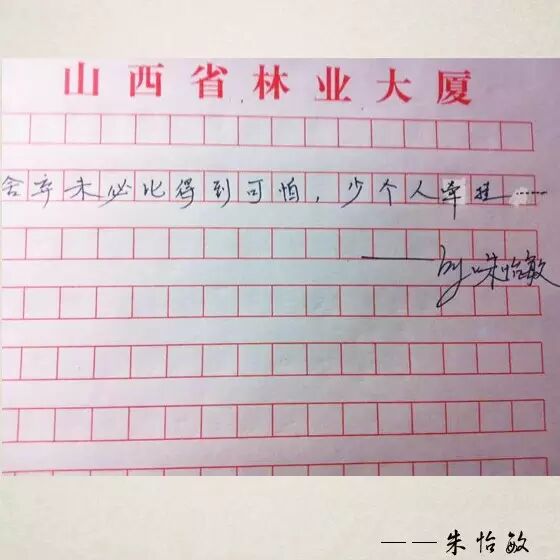 山西省林业大厦
舍弃未必比得到可怕，少个人牵挂……
——by 朱怡敏
——朱怡敏